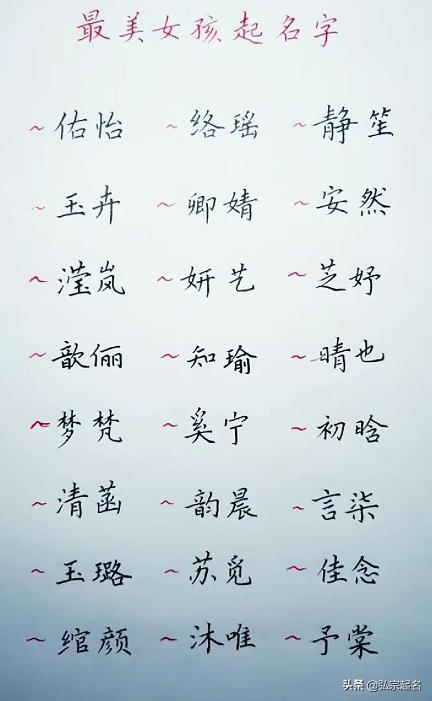 最美女孩起名字
~佑怡 ~络瑶 ~静笙
~玉卉 ~卿婧 ~安然
~滢岚 ~妍艺 ~芝妤
~歆俪 ~知瑜 ~晴也
~梦梵 ~奚宁 ~初晗
~清菡 ~韵晨 ~言柒
~玉璐 ~苏觅 ~佳念
~绾颜 ~沐唯 ~予棠
头条 @弘宗起名